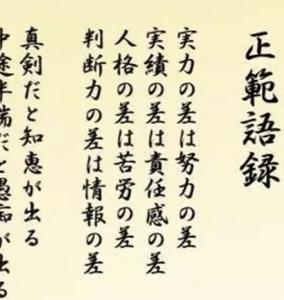 正範語録
実力の差は努力の差
実績の差は責任感の差
人格の差は苦労の差
判断力の差は情報の差
真剣だと知恵が出る
中途半端だと愚痴が出る